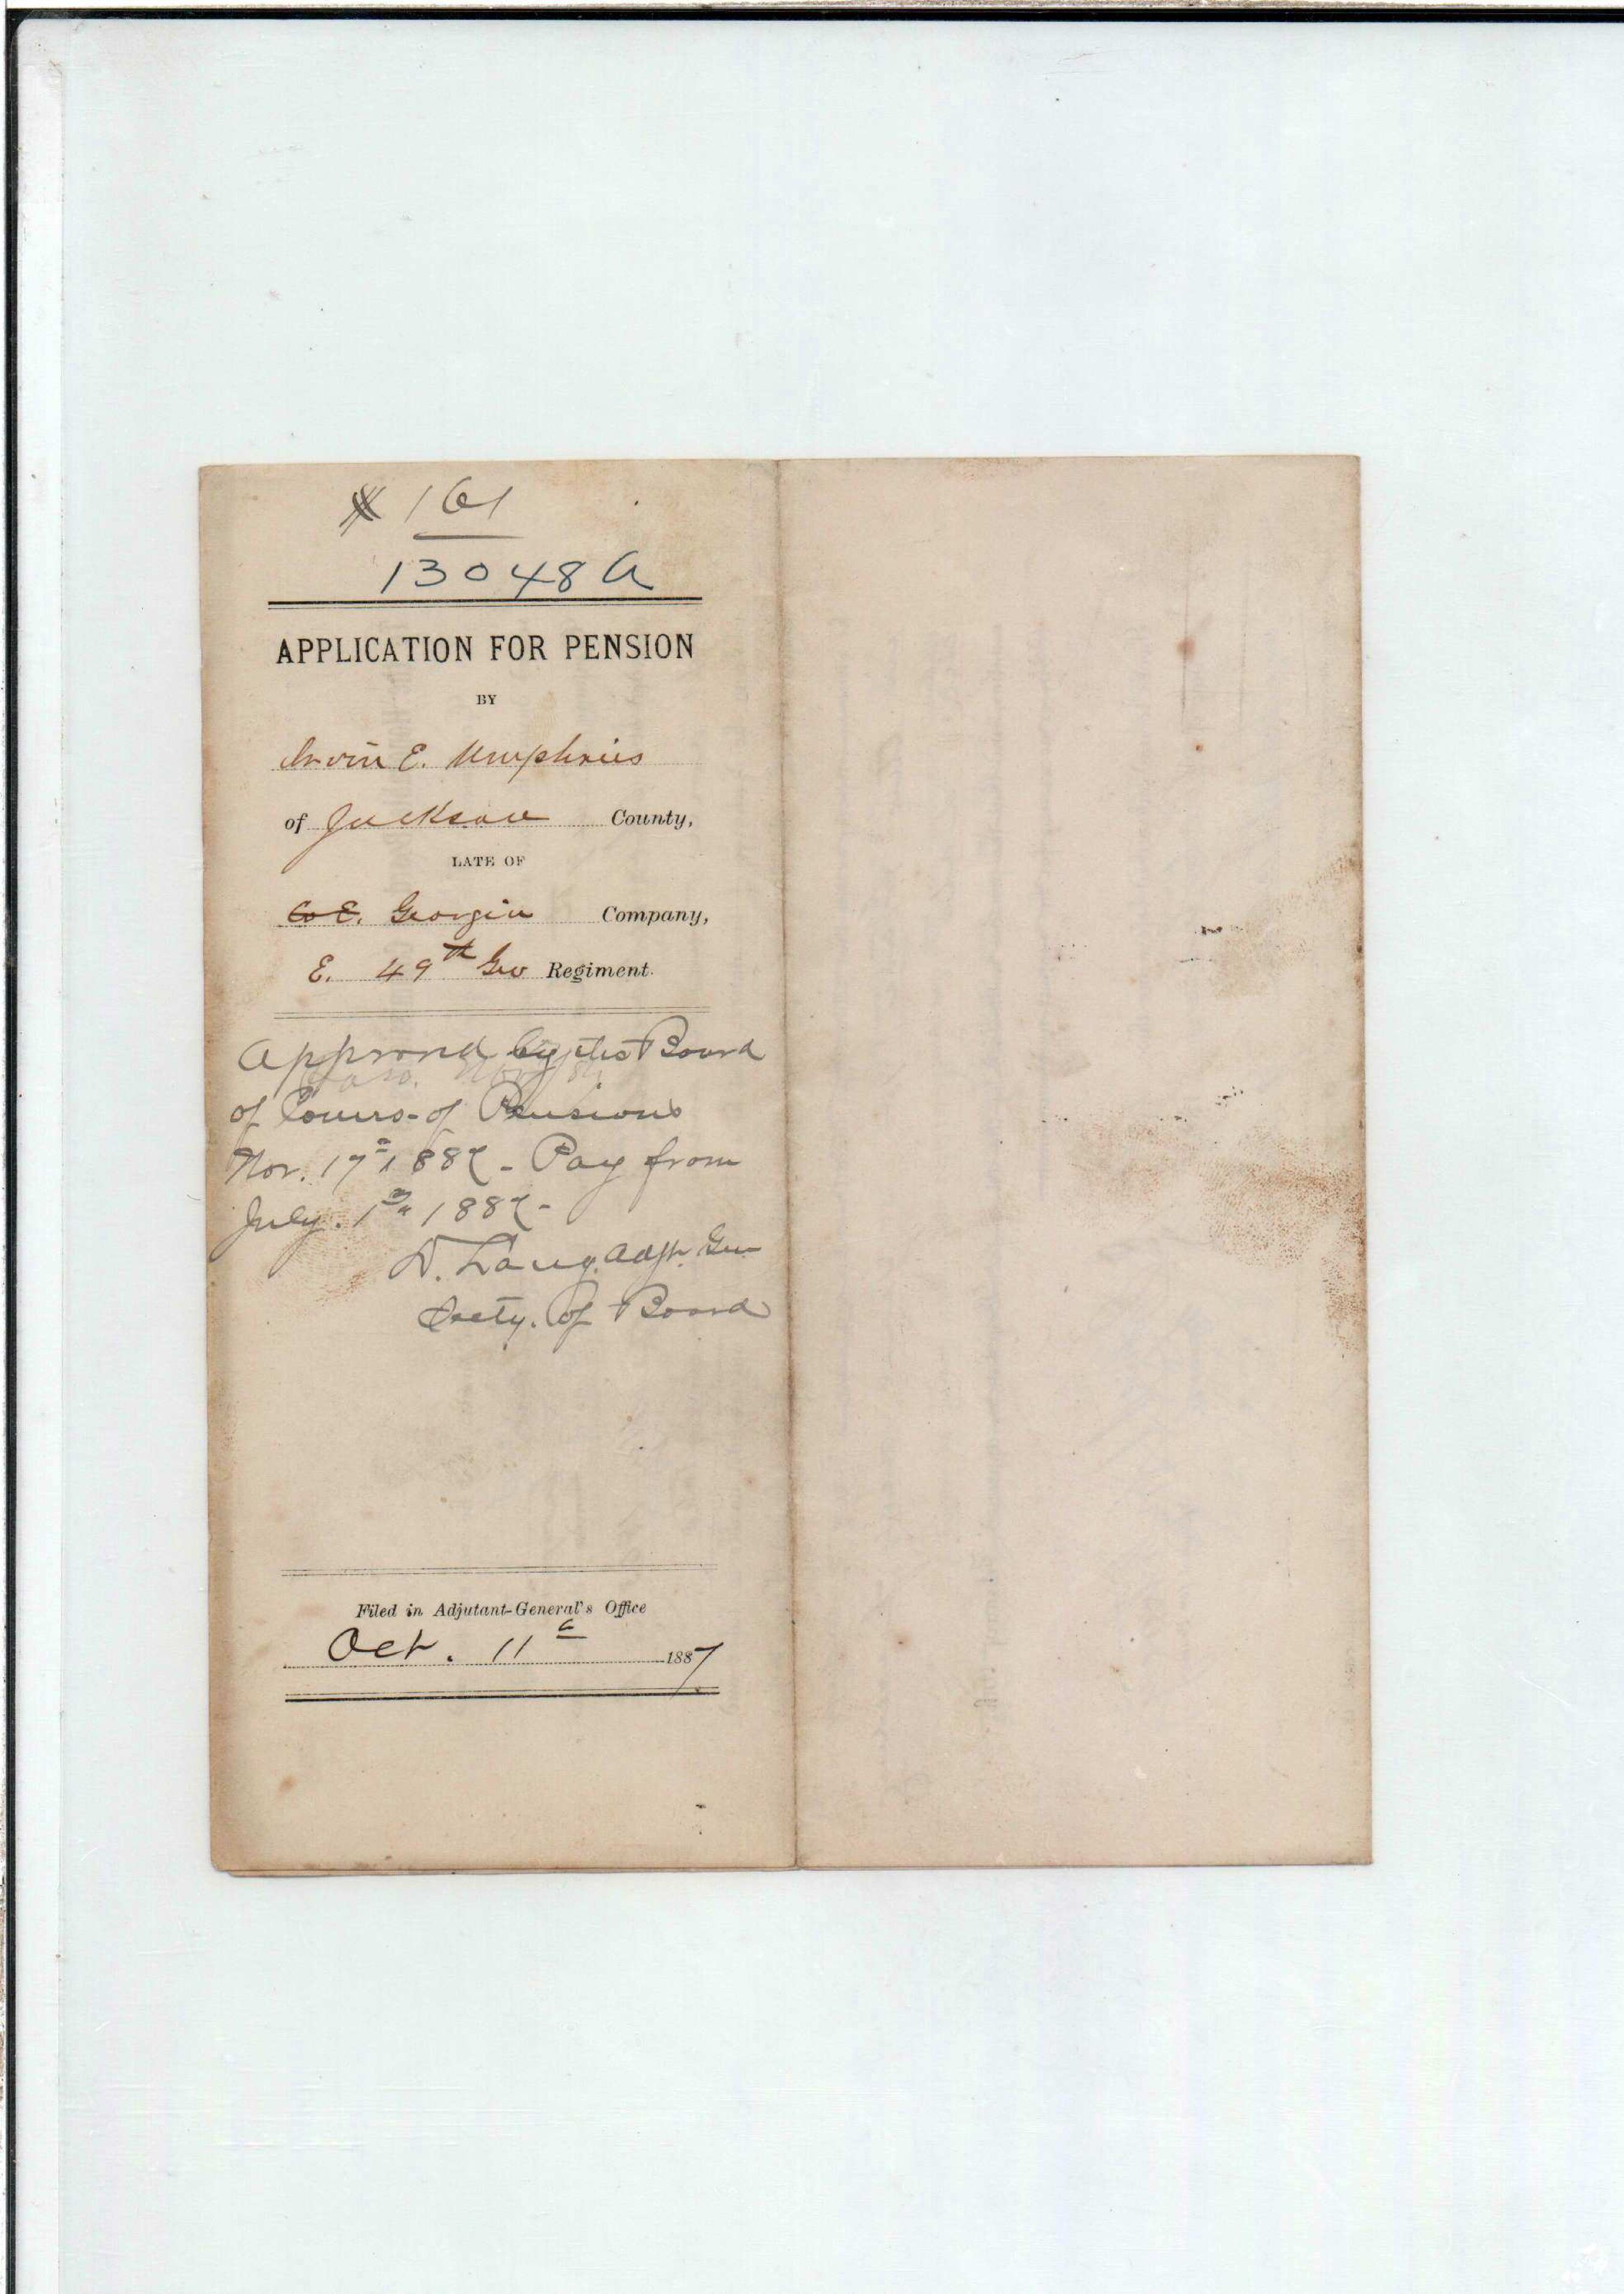 # 161
13048 A
APPLICATION FOR PENSION
BY
Irvin E. Umphries
of Jackson County,
LATE OF
Co E. Georgia Company,
E. 49th Geo Regiment.
Approved by the Board
of Commrs. of Pensions
Nov. 17th 1887 - Pay from
July. 1st 1887 -
D. Lang. Adjt. Gen
Secty. of Board
Filed in Adjutant-General's Office
Oct. 11th 1887